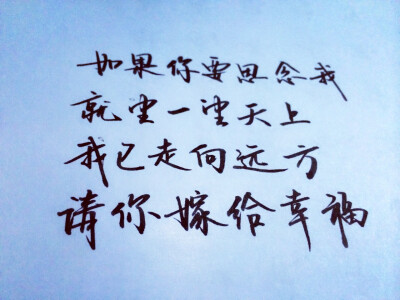 如果你要思念我
就望一望天上
我已走向远方
請你嫁给幸福